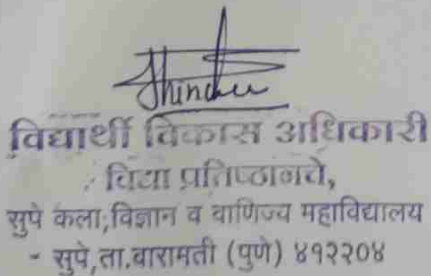 विद्यार्थी विकास अधिकारी
विद्या प्रतिष्ठानचे,
सुपे कला,विज्ञान व वाणिज्य महाविद्यालय
- सुपे,ता.बारामती (पुणे) ४१२२०४